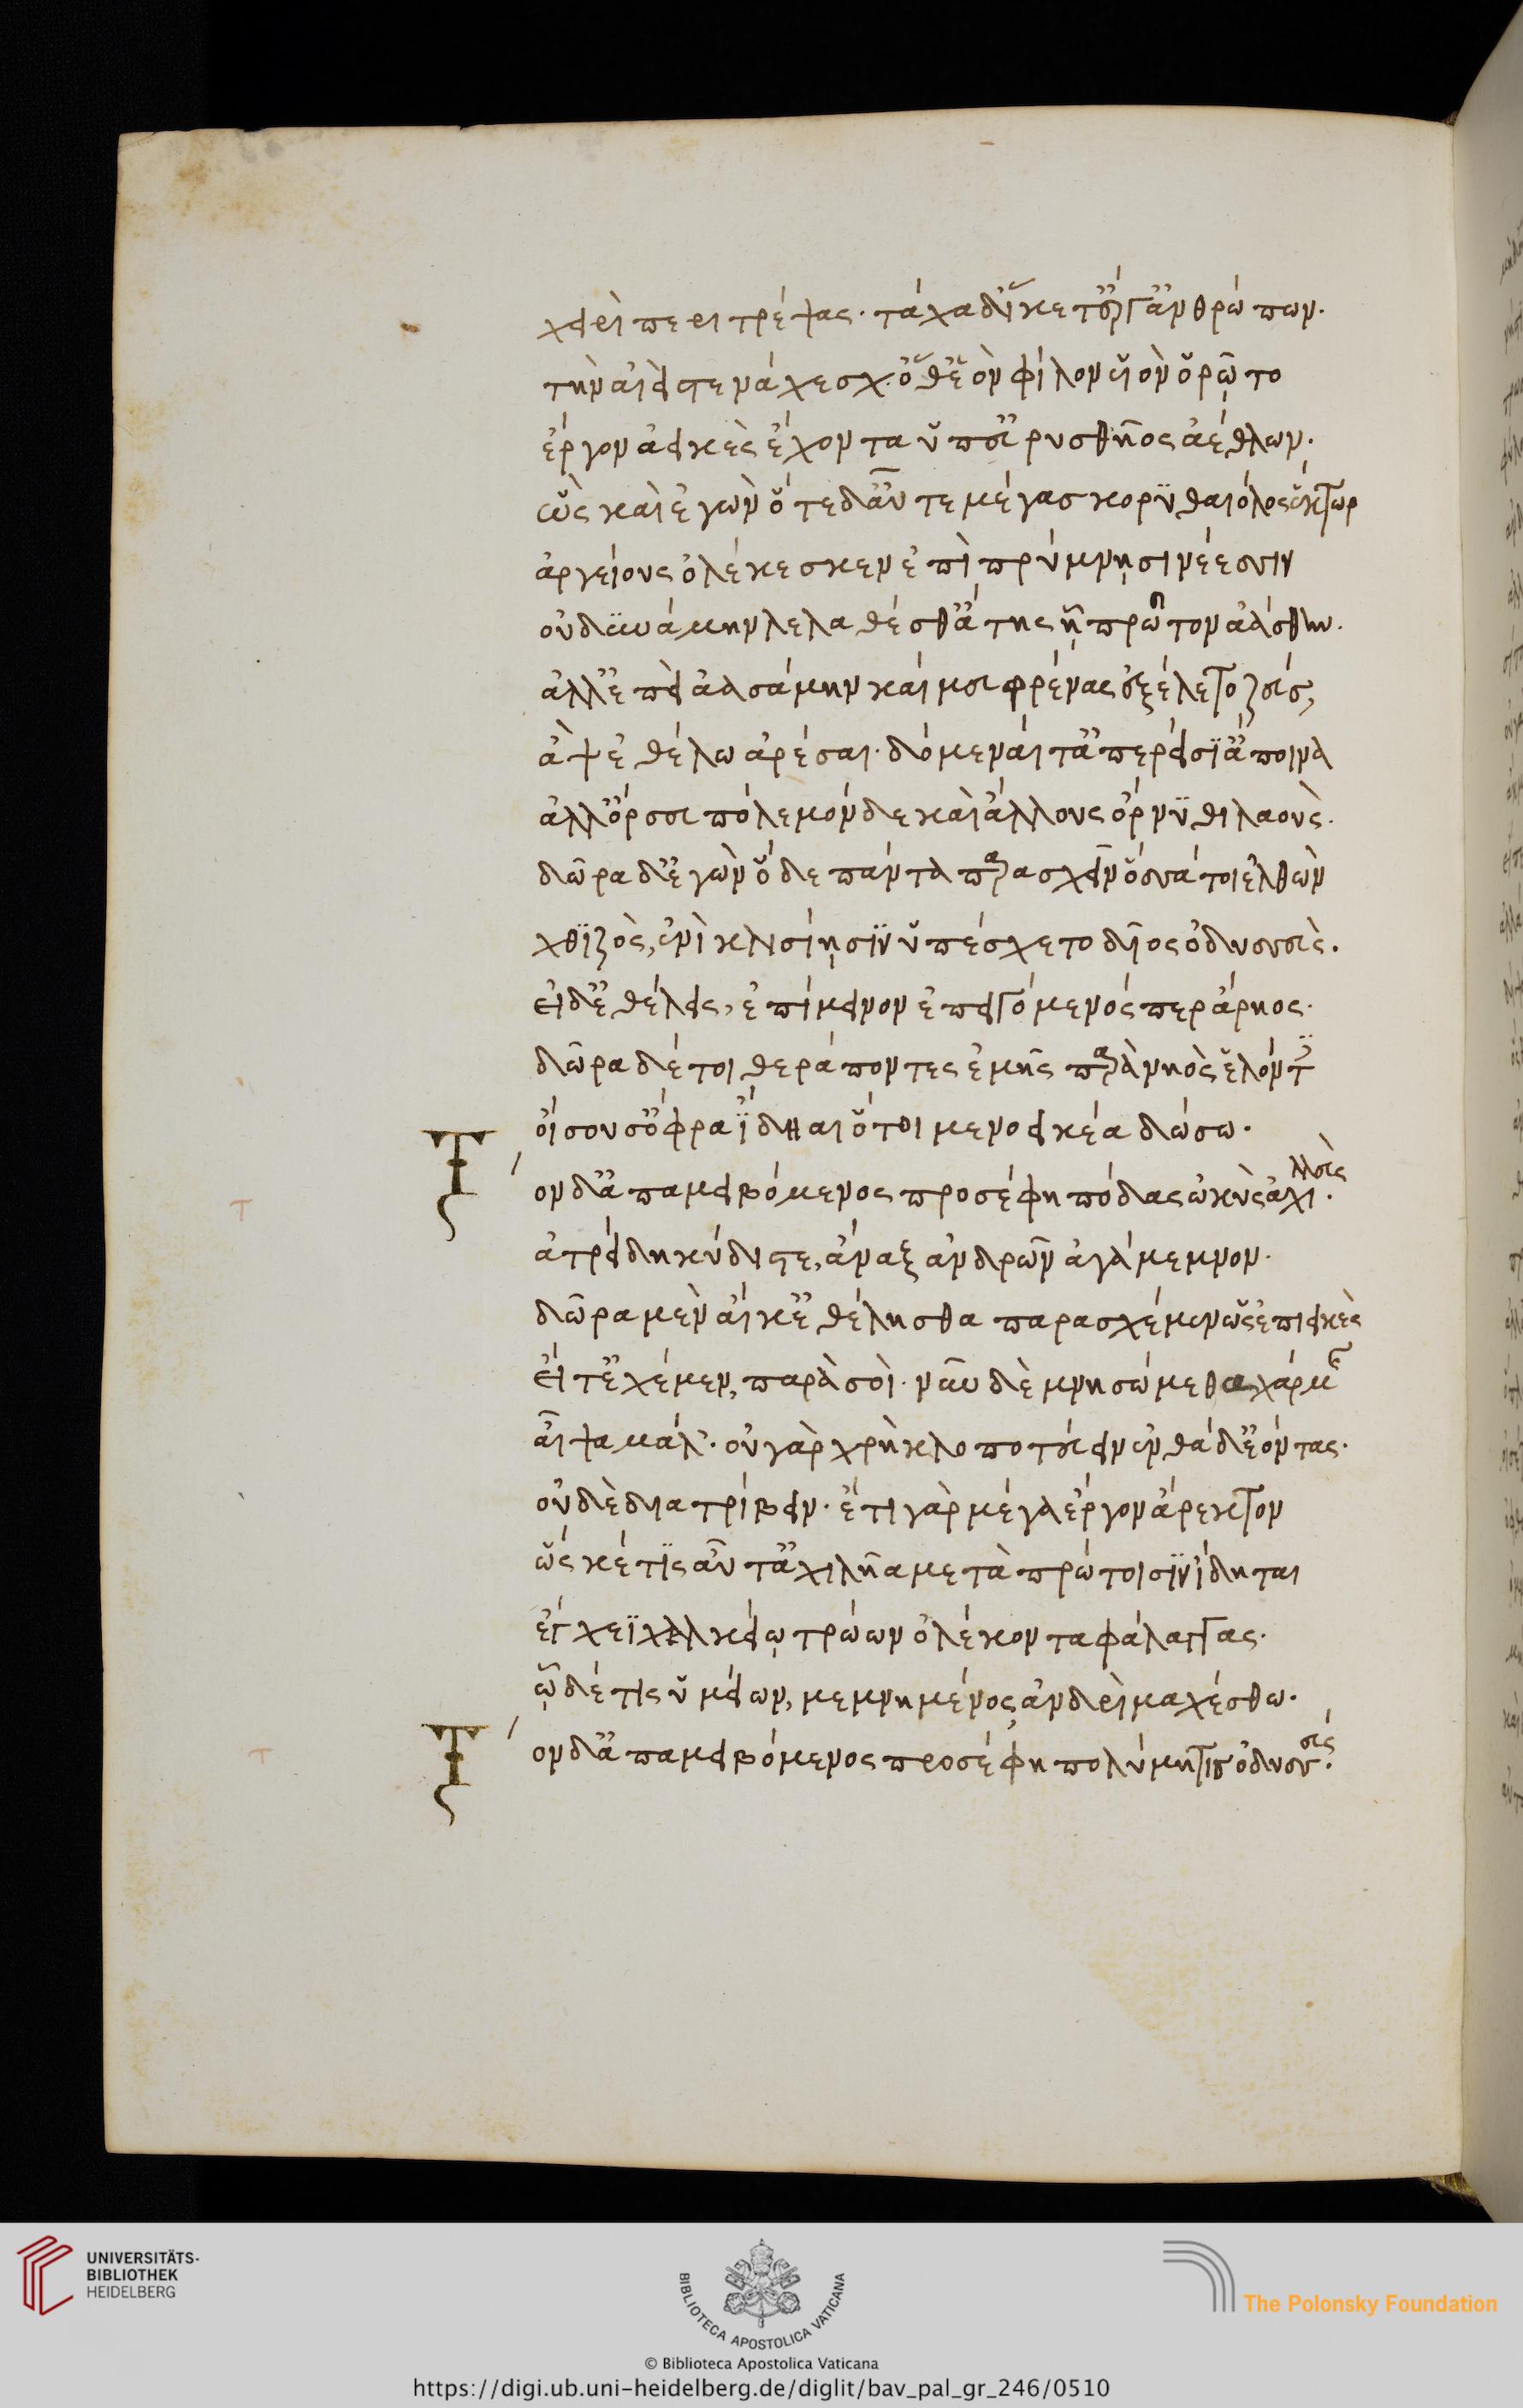 χειρὶ περιτρέψας· τάχα δ' ἵκετο ἔργ' ἀνθρώπων.
τὴν αἰεὶ στενάχεσχ' ὅθ' ἑὸν φίλον υἱὸν ὁρῷτο
ἔργον ἀεικὲς ἔχοντα ὑπ' εὐρυσθῆος ἀέθλων.
ὣς καὶ ἐγὼν ὅτε δ' αὖτε μέγας κορυθαιόλος ἕκτωρ
ἀργείους ὀλέκεσκεν ἐπὶ πρύμνῃσι νέεσσιν
οὐ δυνάμην λελαθέσθ' ἄτης ᾗ πρῶτον ἀάσθην.
ἀλλ' ἐπεὶ ἀασάμην καί μευ φρένας ἐξέλετο ζεύς,
ἂψ ἐθέλω ἀρέσαι· δόμεναί τ' ἀπερείσϊ' ἄποινα
ἀλλ' ὄρσευ πόλεμόνδε καὶ ἄλλους ὄρνυθι λαοὺς.
δῶρα δ' ἐγὼν ὅδε πάντα παρασχεῖν ὅσσά τοι ἐλθὼν
χθϊζὸς, ἐνὶ κλισίῃσϊν ὑπέσχετο δῖος ὀδυσσεὺς.
εἰ δ' ἐθέλεις, ἐπίμεινον ἐπειγόμενός περ ἄρηος.
δῶρα δέ τοι θεράποντες ἐμῆς παρὰ νηὸς ἑλόντ'
οἴσουσ' ὄφρα ἴδηαι ὅ τοι μενοεικέα δώσω.
Τὸν δ' ἀπαμειβόμενος προσέφη πόδας ὠκὺς ἀχιλλεὺς.
ἀτρείδη κύδιστε, ἄναξ ἀνδρῶν ἀγάμεμνον.
δῶρα μὲν αἴ κ' ἐθέλησθα παρασχέμεν ὡς ἐπιεικὲς
εἴ τ' ἐχέμεν, παρὰ σοὶ. νῦν δὲ μνησώμεθα χάρμης
αἶψα μάλ'. οὐ γὰρ χρὴ κλοποτεύειν ἐνθάδ' ἐόντας.
οὐδὲ διατρίβειν. ἔτι γὰρ μέγα ἔργον ἄρεκτον
ὥς κέ τϊς αὖτ' ἀχιλῆα μετὰ πρώτοισϊν ἴδηται
ἔγχεϊ χαλκείῳ τρώων ὀλέκοντα φάλαγγας.
ᾧδέ τις ὑμείων, μεμνημένος ἀνδρὶ μαχέσθω.
Τὸν δ' ἀπαμειβόμενος προσέφη πολύμητις ὀδυσσεύς.
UNIVERSITÄTS-
BIBLIOTHEK
HEIDELBERG
BIBLIOTECA APOSTOLICA VATICANA
The Polonsky Foundation
© Biblioteca Apostolica Vaticana
https://digi.ub.uni-heidelberg.de/diglit/bav_pal_gr_246/0510